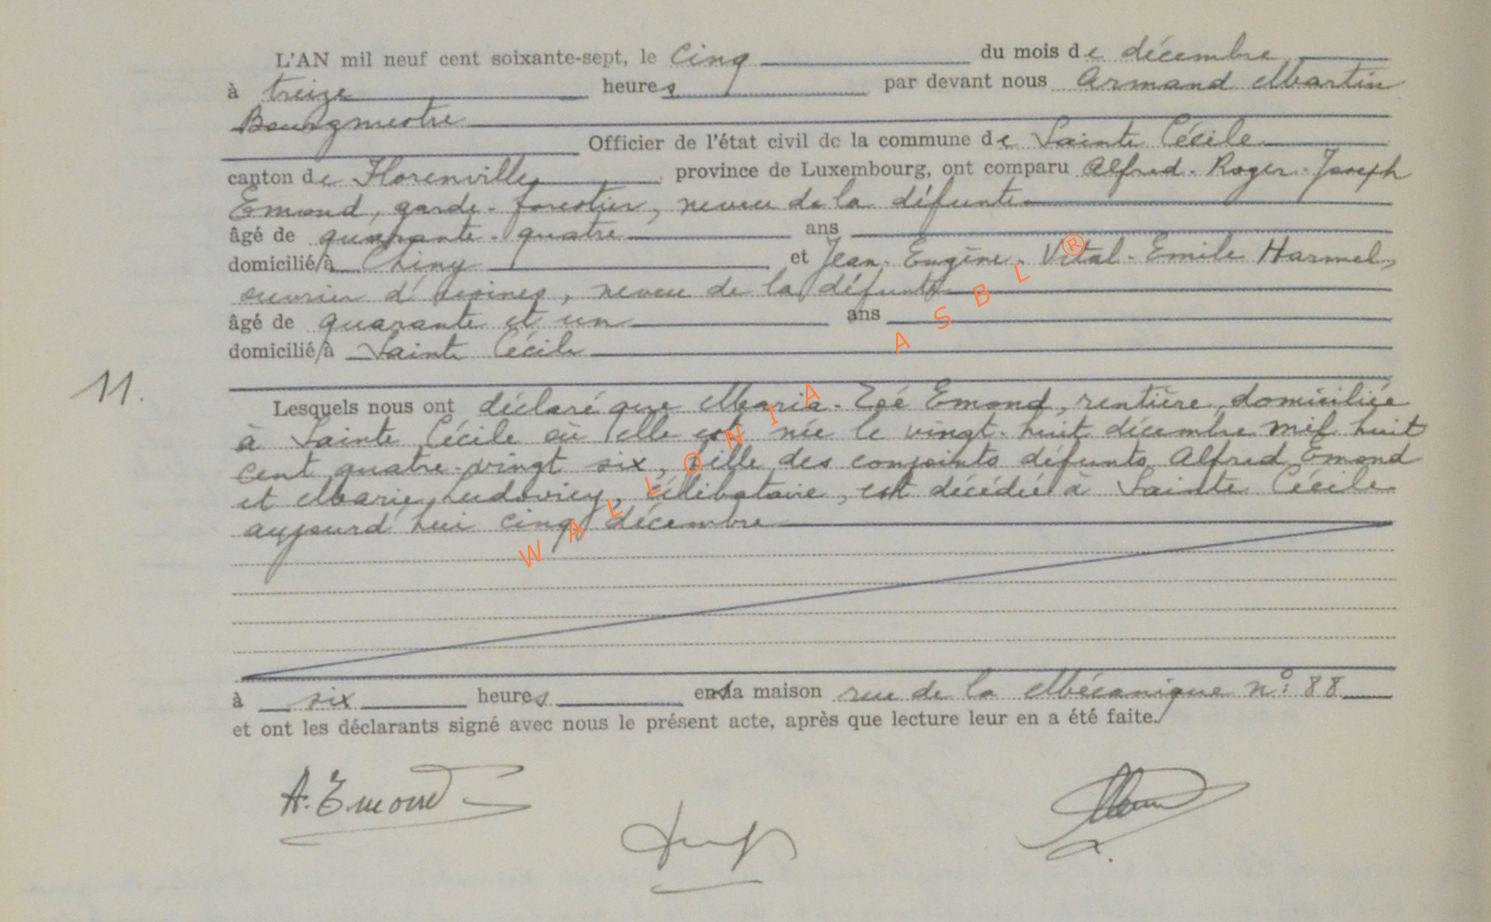 L'AN mil neuf cent soixante-sept, le cinq du mois de décembre
à treize heures par devant nous Armand Martin
Bourgmestre
Officier de l'état civil de la commune de Sainte Cécile
canton de Florenville province de Luxembourg, ont comparu Alfred-Roger-Joseph
Emond, garde-forestier, neveu de la défunte
âgé de quarante-quatre ans
domicilié/à Chiny et Jean-Eugène-Vital-Emile Harmel,
ouvrier d'usines, neveu de la défunte
âgé de quarante et un ans
domicilié/à Sainte Cécile
11.
Lesquels nous ont déclaré que Maria-Zoé Emond, rentière, domiciliée
à Sainte Cécile où elle est née le vingt-huit décembre mil huit
cent quatre-vingt six, fille des conjoints défunts Alfred Emond
et Marie Ludovicy, célibataire, est décédée à Sainte Cécile
aujourd'hui cinq décembre
à six heures en la maison rue de la Mécanique n° 88
et ont les déclarants signé avec nous le présent acte, après que lecture leur en a été faite.
A. Emond
WALLONIA ASBL ®